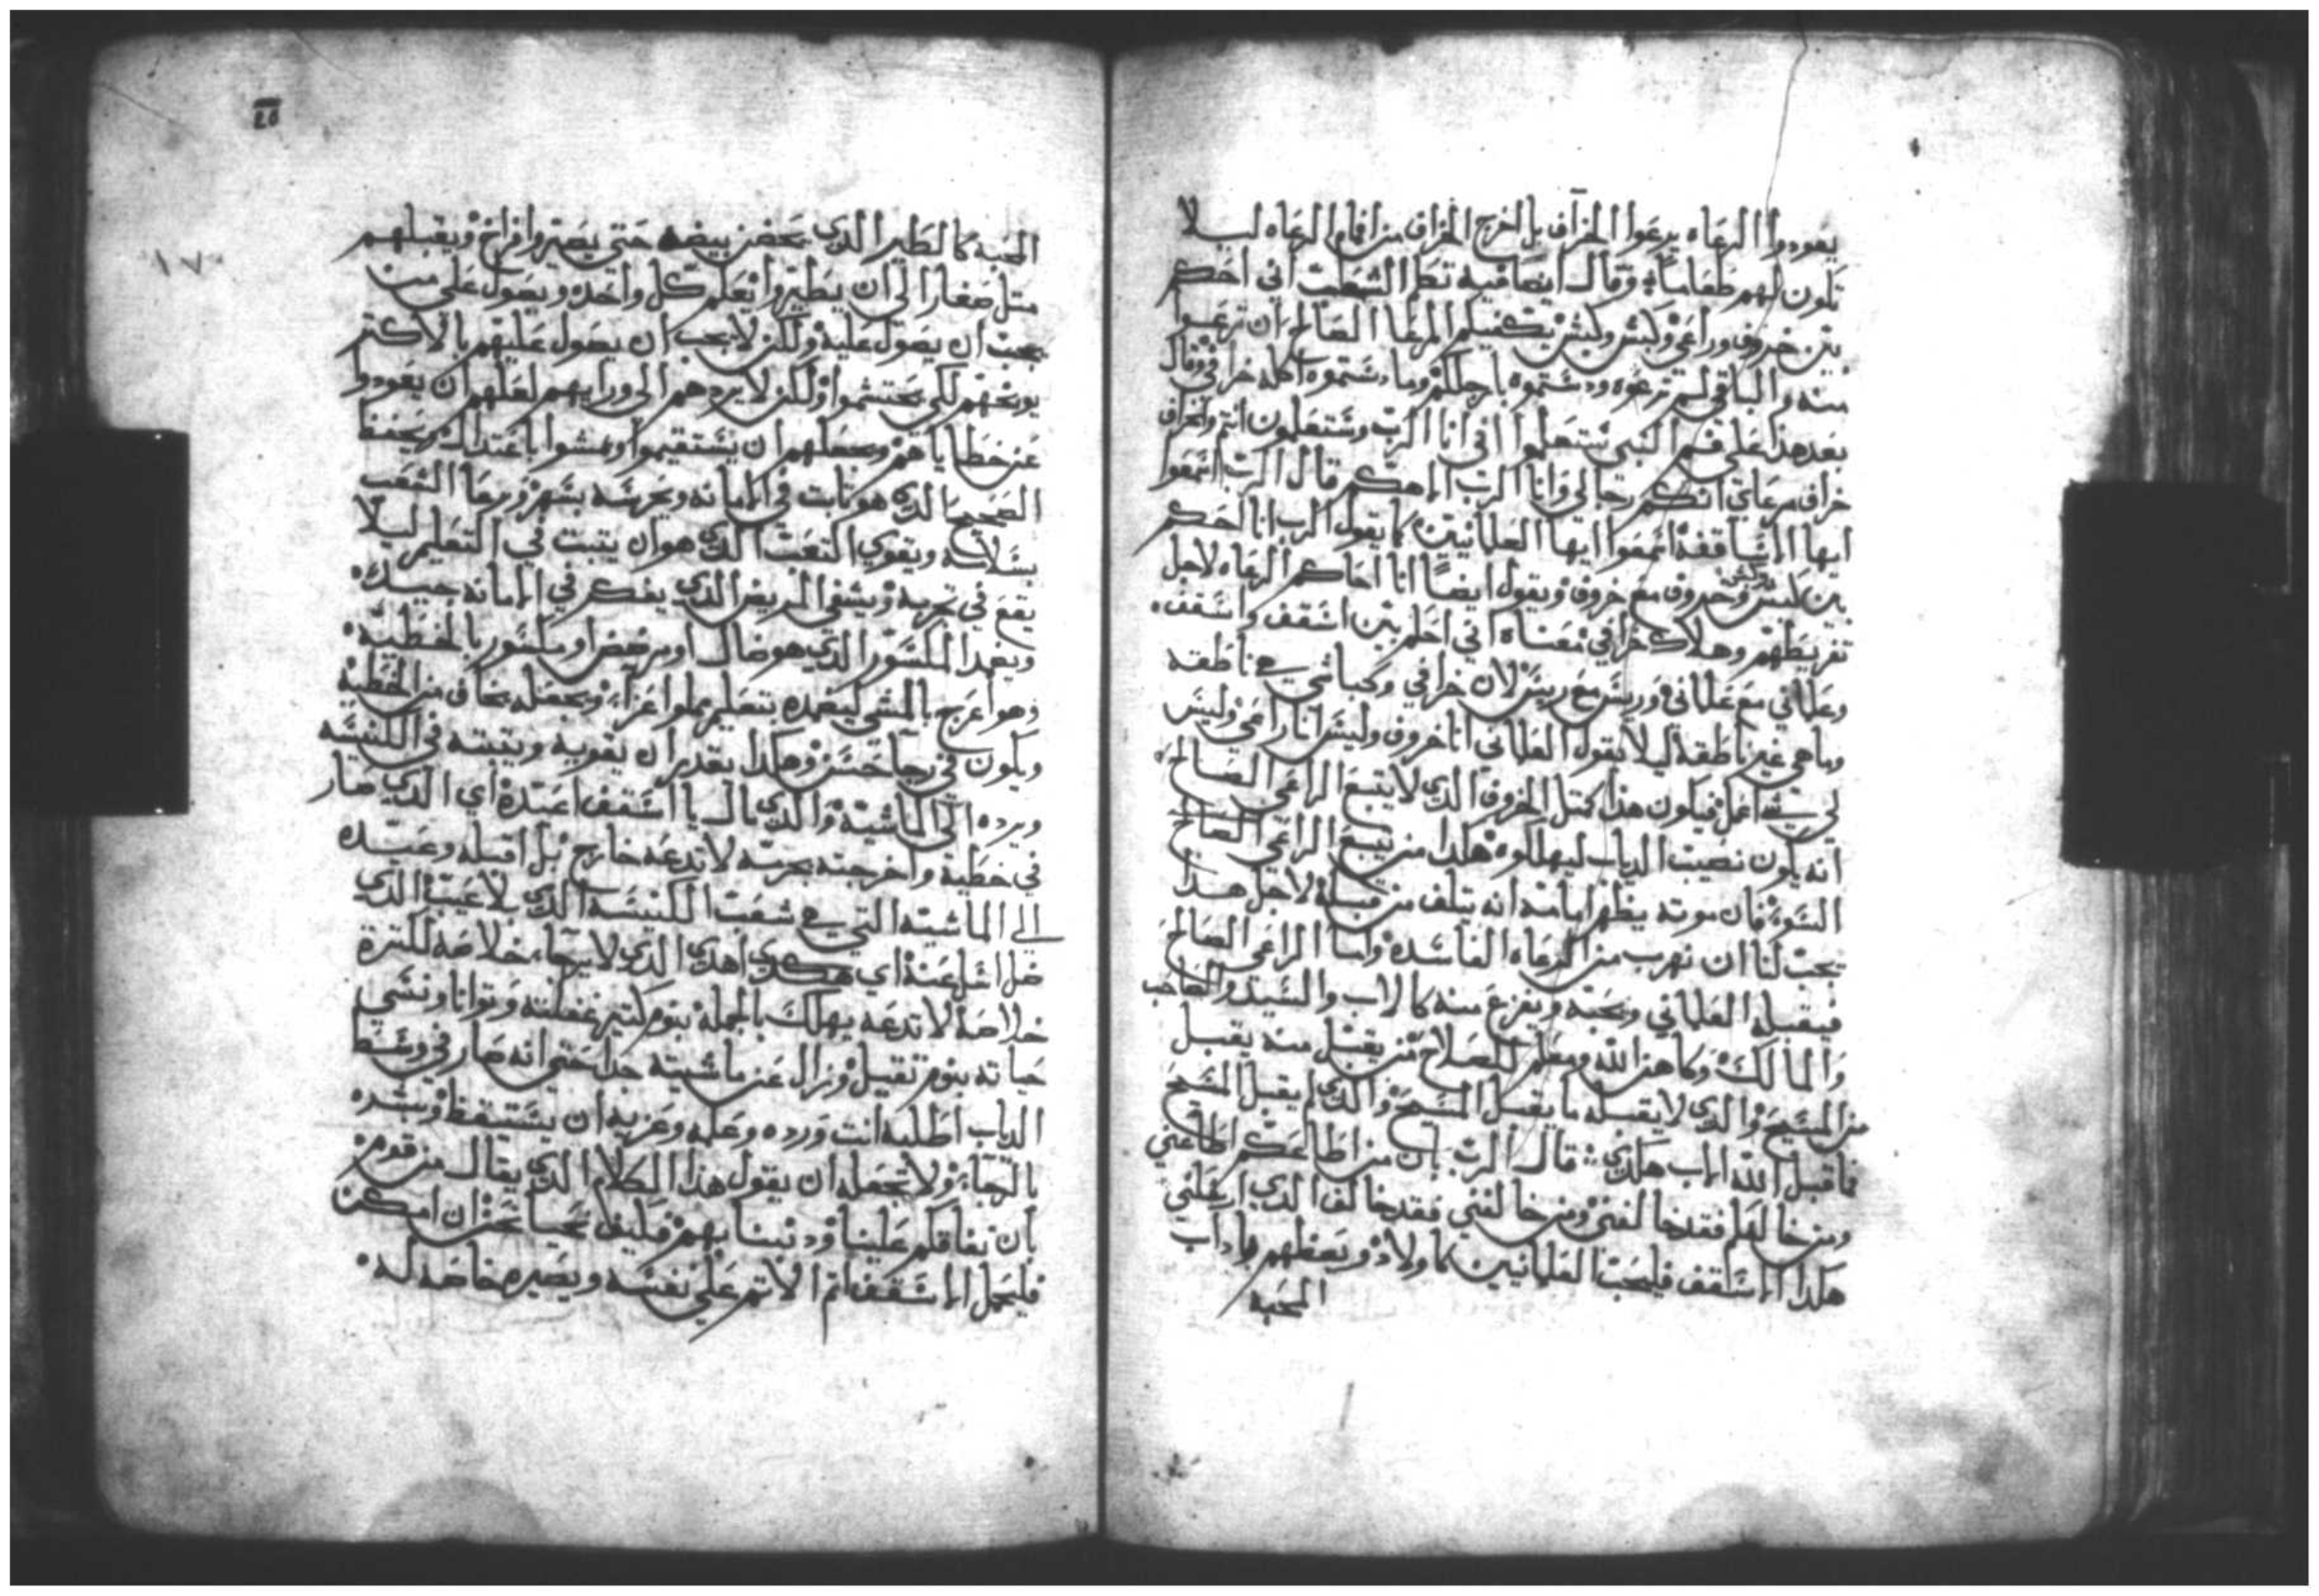 يعودوا الرعاه يرعوا الخراف بل اخرج الخراف من افام الرعاه ليلا
تكون لهم طعاما وقال ايضا فيه تكلم الشعت اني احكم
بين خروف وراعي وكبش وكبش يكفيكم المرعا الصالح ان ترعوا
منه والباقي لم ترعوه ودستموه بارجلكم وما دستموه اكله خرافي وقال
بعد هذا على فم النبي ستعلموا اني انا الرب وستعلمون انتم والخراف
خراف مرعاي انكم رجالي وانا الرب الاهكم قال الرب اسمعوا
ايها الاساقفة اسمعوا ايها العلمانيين كما يقول الرب انا احكم
بين كبش وخروف مع خروف ويقول ايضا انا احاكم الرعاه لاجل
تفريطهم وهلاك خرافي معناه اني احكم بين اسقف واسقف
وعلماني مع علماني وريس مع ريس لان خرافي وكباشي هي ناطقه
وما هي غير ناطقه ليلا يقول العلماني انا خروف وليس انا راعي وليس
لي شي اعمل فيكون هذا كمثل الخروف الذي لا يتبع الراعي الصالح
انه يكون نصيب الدياب ليهلكوه هكذا من يتبع الراعي الطالح
السوء فان موته يظهر امامه انه يتلف من قبله لاجل هذا
يجب لنا ان نهرب من الرعاه الفاسده واما الراعي الصالح
فيقبله العلماني ويحبه ويفزع منه كالاب والسيد والصاحب
والمالك وكاهن الله ومعلم للصلاح من يقبل منه يقبل
من المسيح والذي لا يقبله ما يقبل المسيح والذي لم يقبل المسيح
فما قبل الله الاب هكذي قال الرب بان من اطاعكم اطاعني
ومن خالفكم فقد خالفني ومن خالفني فقد خالف الذي ارسلني
هكذا الاساقفه فليحب العلمانيين كاولاد ويعظهم باداب
المحبه
المحبه كالطير الذي يحضن بيضه حتى يصيروا فراخ ويقبلهم
مثل صغار الى ان يطيروا يعلم كل واحده ويصول على من
يجب ان يصول عليه ولكن لا يجب ان يصول عليهم بالاكثر
يوبخهم لكي يحتشموا ولكن لا يردهم الى ورايهم لعلهم ان يعودوا
عن خطاياهم ويجعلهم ان يستقيموا ويمشوا باعتدال ويحفظ
الصحيح الذي هو ثابت في الامانه ويحرسه بسهر ويرعا الشعب
بسلامه ويقوي التعب الذي هو ان يثبت في التعليم ليلا
يقع في تجربه ويشفي المريض الذي يفكر في الامانه جيدا
ويضمد المكسور الذي هو ضال او مرضض او مكسور بالخطيه
وهو اعرج بالمشي ليضمده بتعليم مملوا عزاء ويجعله يخاف من الخطية
ويكون في رجا حسن وهكذا يقدر ان يقويه ويثبته في الكنيسه
ويرده الى الماشيه والذي مال يا اسقف اعتده اي الذي صار
في خطية واخرجته بحرمه لا تدعه خارج بل اقبله وعيده
الى الماشيه التي هي شعب الكنيسه الذي بلا عيب الذي
ضل اسل عنه اي هكدي اهدي الذي لا يرجا خلاصه لكثرة
خلاصه لا تدعه يهلك بالجمله بنوم كثير غفلته وتوانا ونسي
حياته بنوم ثقيل وزال عن ماشيته جدا حتى انه صار في وسط
الدياب اطلبه انت ورده وعلمه وعزيه ان يستيقظ وتسده
بالرجاء ولا تجعله ان يقول هذا الكلام الذي يقال من قوم
بان نفاقكم علينا ودنبنا بهم فكيف نحيا نحن ان امكن
فليحمل الاسقف اثم الاثم على نفسه ويصيره خاصه له